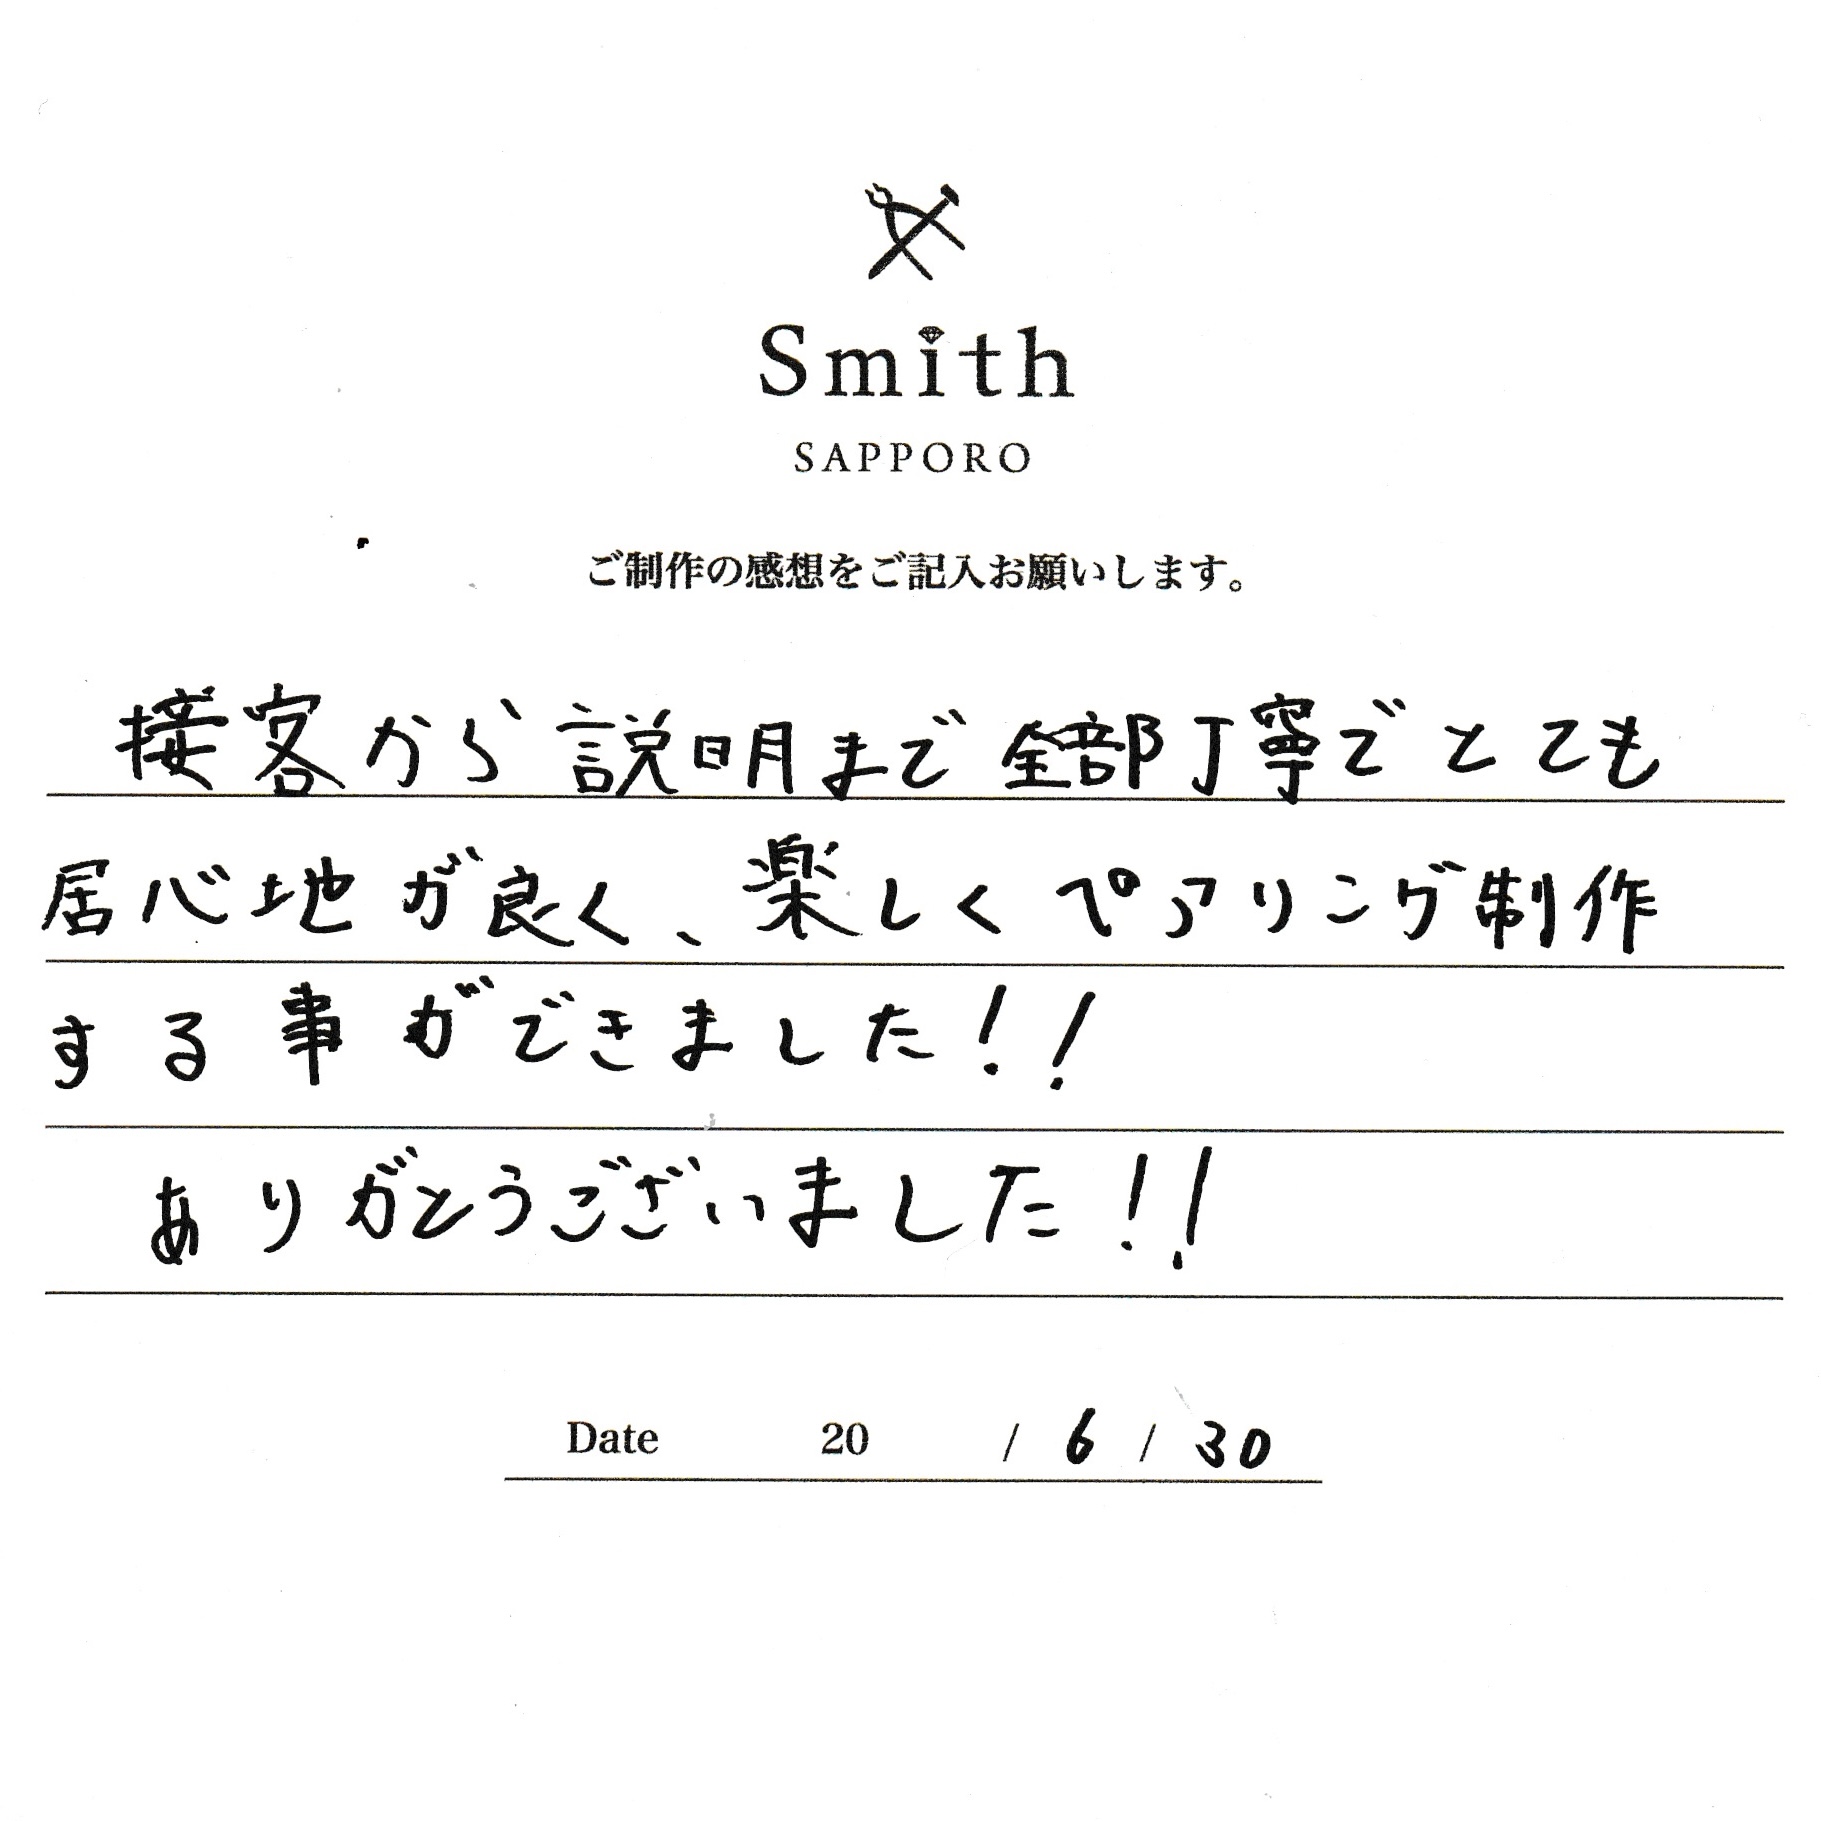 Smith
SAPPORO
ご制作の感想をご記入お願いします。
接客から説明まで全部丁寧でとても
居心地が良く、楽しくペアリング制作
する事ができました!!
ありがとうございました!!
Date 20 / 6 / 30